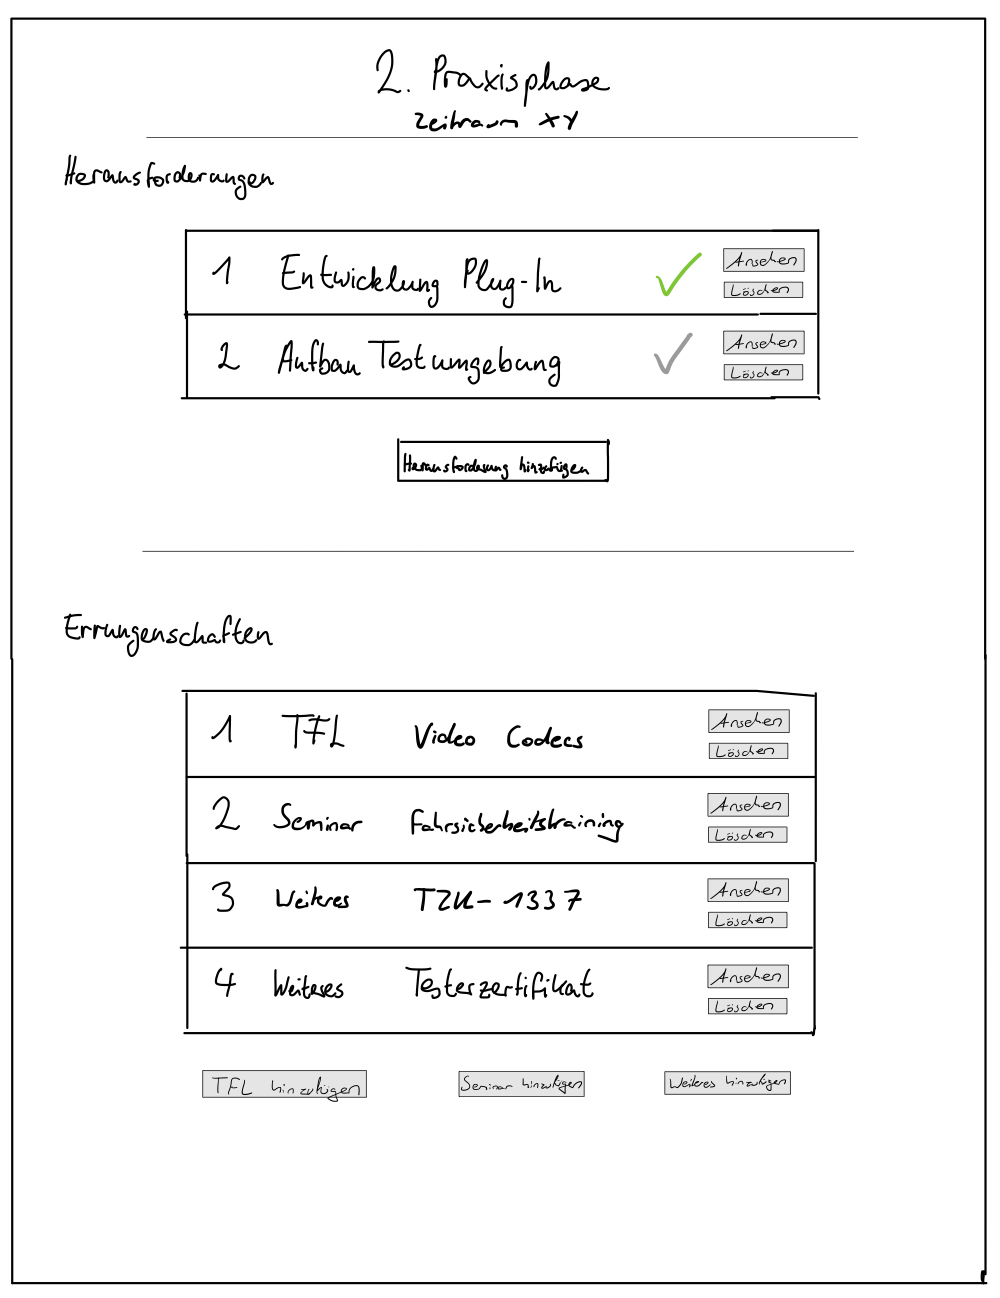 2. Praxisphase
Zeitraum XY
Herausforderungen
1 Entwicklung Plug-In Ansehen
Löschen
2 Aufbau Testumgebung Ansehen
Löschen
Herausforderung hinzufügen
Errungenschaften
1 TFL Video Codecs Ansehen
Löschen
2 Seminar Fahrsicherheitstraining Ansehen
Löschen
3 Weiteres TZU-1337 Ansehen
Löschen
4 Weiteres Testerzertifikat Ansehen
Löschen
TFL hinzufügen Seminar hinzufügen Weiteres hinzufügen